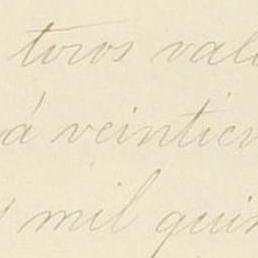 toros val
á veintici
mil quin